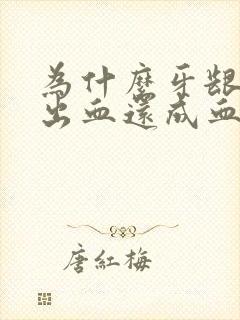 為什麼牙齦
出血還成血
唐紅梅